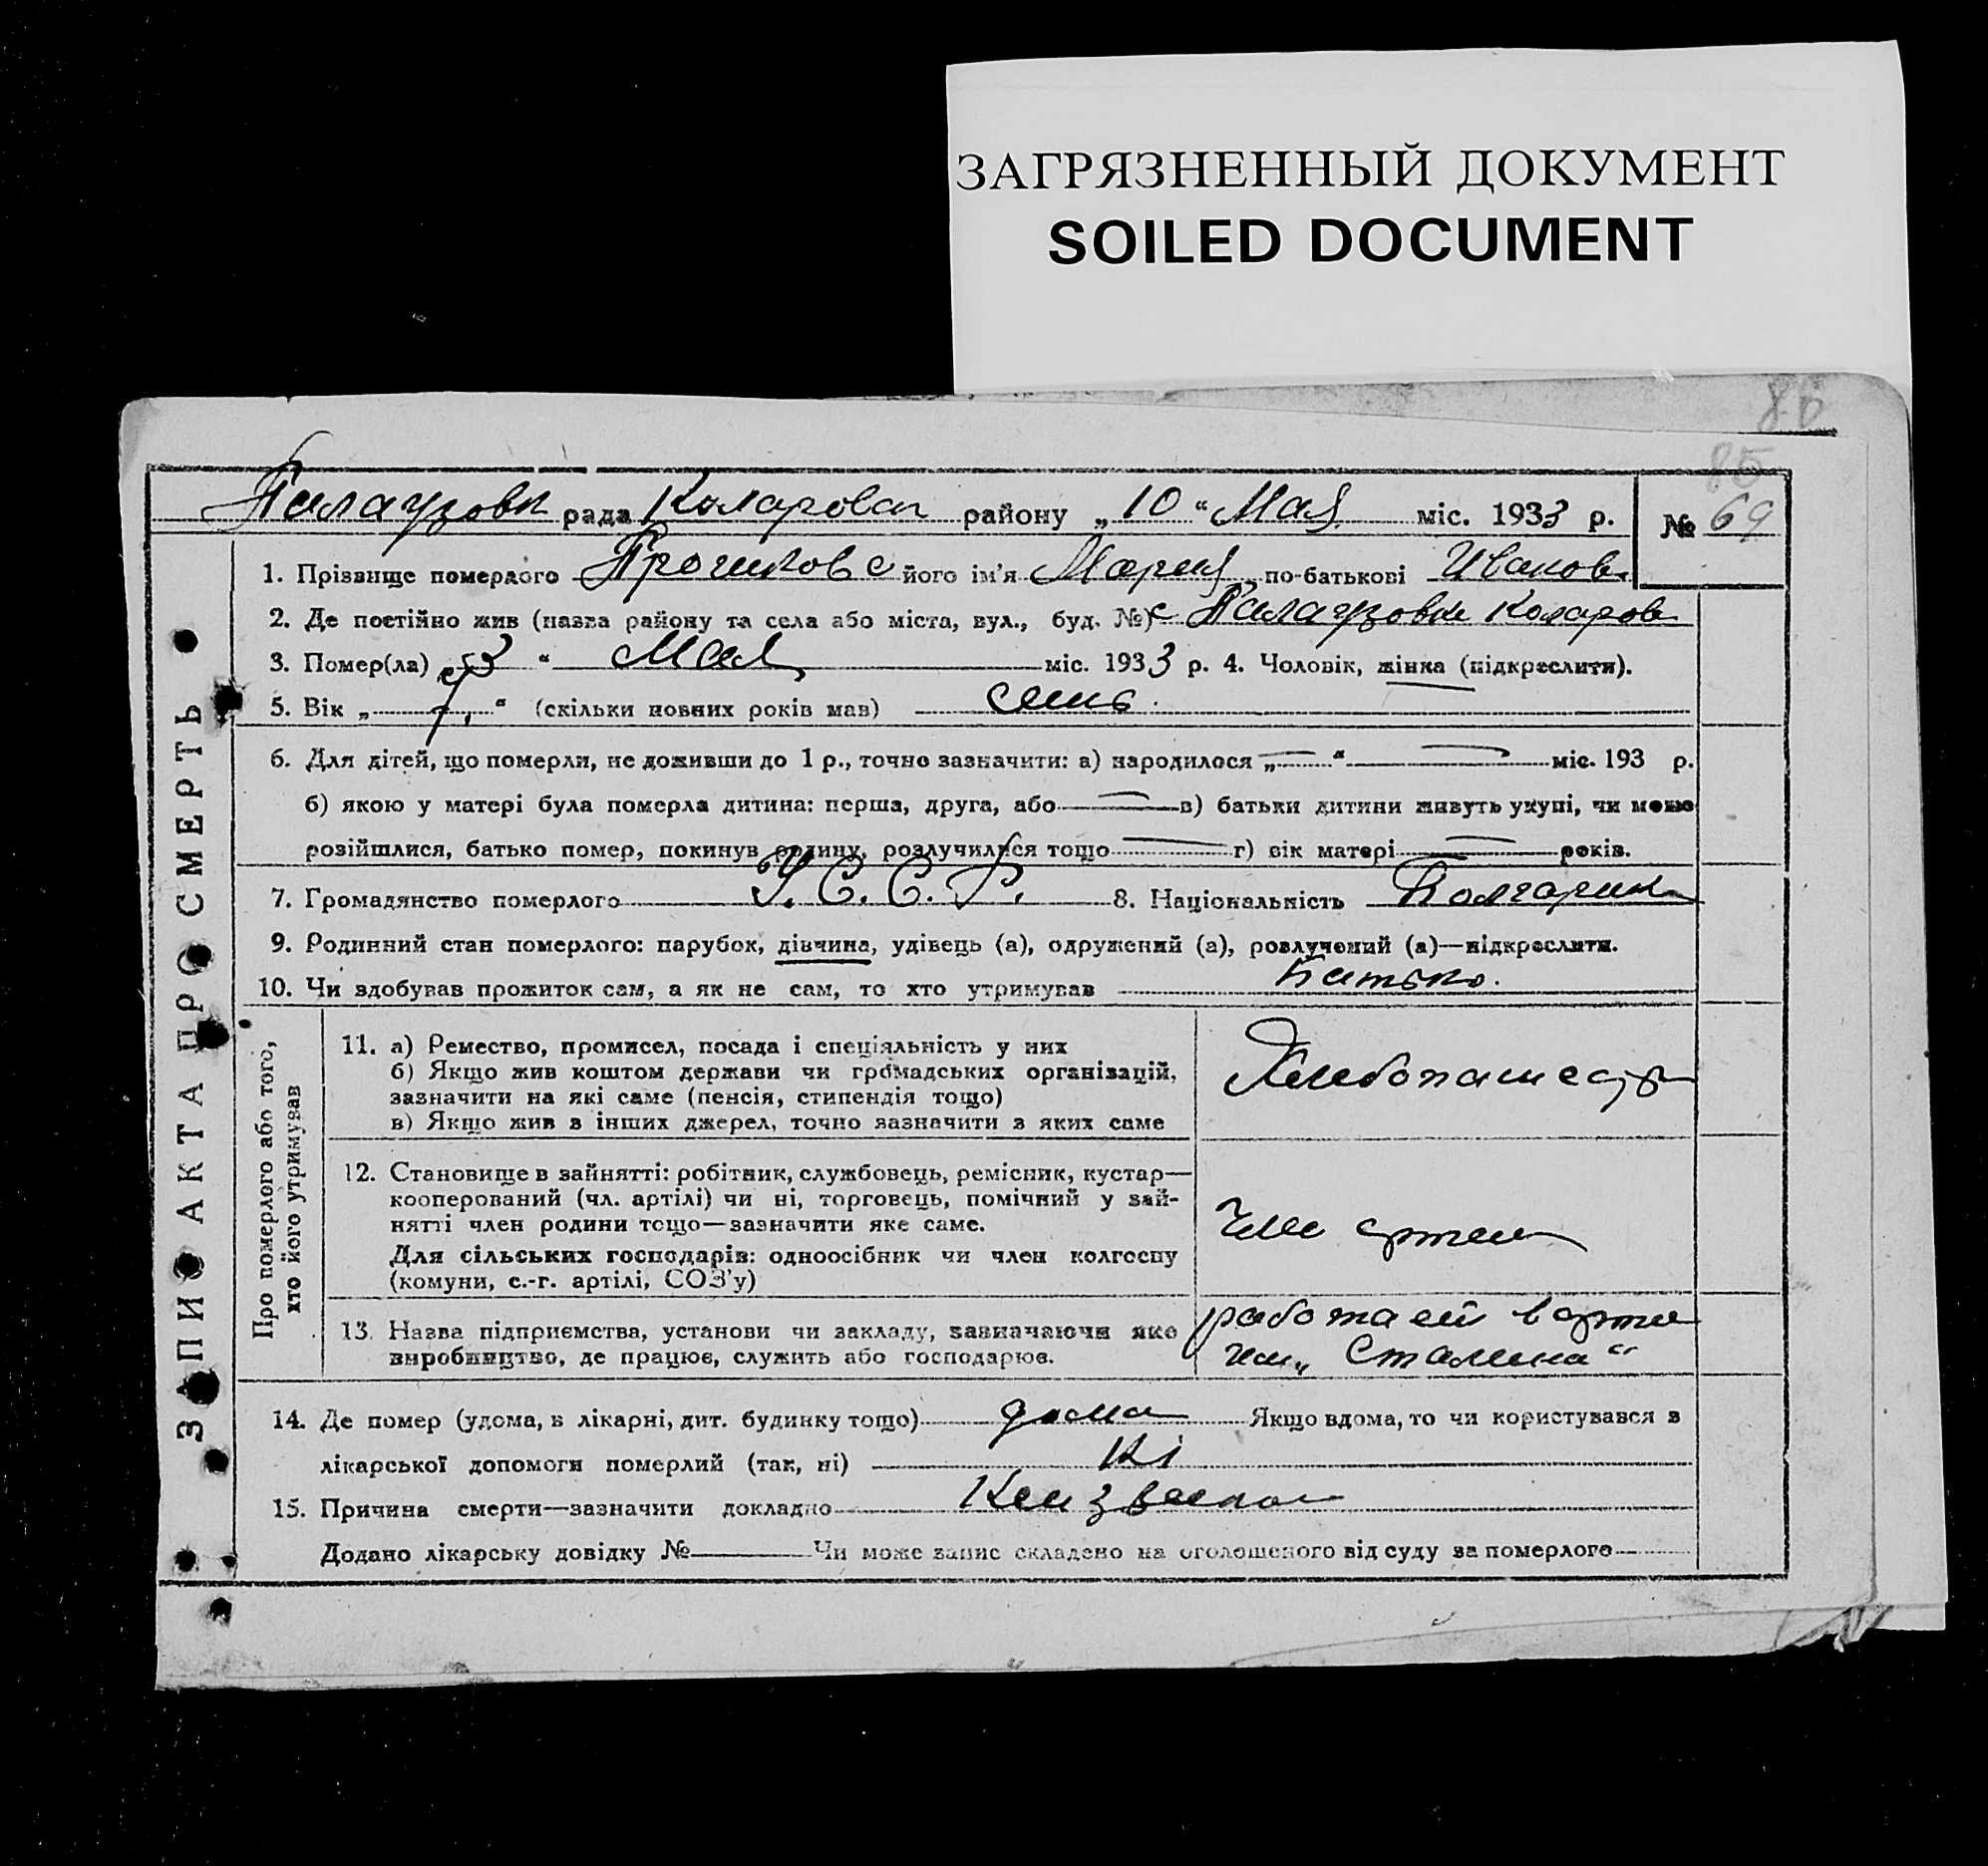 ЗАГРЯЗНЕННЫЙ ДОКУМЕНТ
SOILED DOCUMENT
80
85
Палаузовк рада Коларовск району „10“ Мая міс. 1933 р. № 69
ЗАПИС АКТА ПРО СМЕРТЬ
1. Прізвище померлого його ім'я Мария по-батькові Иванов.
2. Де постійно жив (назва району та села або міста, вул., буд. №) с Палаузовка Коларов
3. Помер(ла) „3“ Мая міс. 1933 р. 4. Чоловік, жінка (підкреслити).
5. Вік „7.“ (скільки повних років мав) семь.
6. Для дітей, що померли, не доживши до 1 р., точно зазначити: а) народилося „—“ — міс. 193 р.
б) якою у матері була померла дитина: перша, друга, або — в) батьки дитини живуть укупі, чи може
розійшлися, батько помер, покинув родину, розлучилися тощо — г) вік матері — років.
7. Громадянство померлого У.С.С.Р. 8. Національність Болгарка
9. Родинний стан померлого: парубок, дівчина, удівець (а), одружений (а), розлучений (а)—підкреслити.
10. Чи здобував прожиток сам, а як не сам, то хто утримував Батько.
Про померлого або того,
хто його утримував
11. а) Ремество, промисел, посада і спеціяльність у них
б) Якщо жив коштом держави чи громадських організацій,
зазначити на які саме (пенсія, стипендія тощо)
в) Якщо жив з інших джерел, точно зазначити з яких саме
Хлебопашество
12. Становище в зайнятті: робітник, службовець, ремісник, кустар—
кооперований (чл. артілі) чи ні, торговець, помічний у зай-
нятті член родини тощо—зазначити яке саме.
Для сільських господарів: одноосібник чи член колгоспу
(комуни, с.-г. артілі, СОЗ'у)
Член артели
13. Назва підприємства, установи чи закладу, зазначаючи яке
виробництво, де працює, служить або господарює.
работает в арте
им „Сталина“
14. Де помер (удома, в лікарні, дит. будинку тощо) дома Якщо вдома, то чи користувався з
лікарської допомоги померлий (так, ні) Ні
15. Причина смерти—зазначити докладно
Додано лікарську довідку № Чи може запис складено на оголошеного від суду за померлого